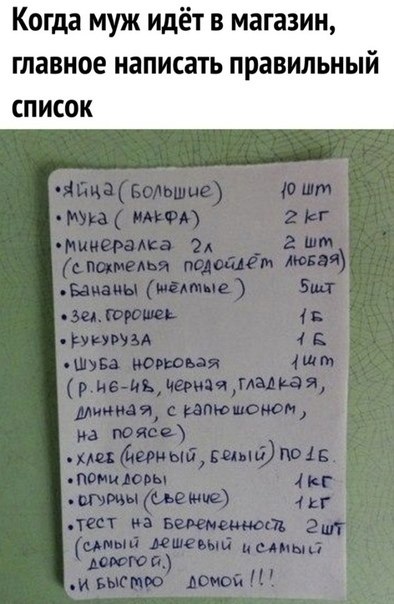 Когда муж идёт в магазин,
главное написать правильный
список
•Яйца (большие) 10 шт
•Мука (МАКФА) 2 кг
•Минералка 2л 2 шт
(с похмелья подойдёт любая)
•Бананы (жёлтые) 5шт
•Зел. горошек 1 Б
•Кукуруза 1 Б
•Шуба норковая 1шт
(р. 46-48, чёрная, гладкая,
длинная, с капюшоном,
на поясе)
•хлеб (чёрный, белый) по 1Б.
•помидоры 1кг
•огурцы (свежие) 1кг
•тест на беременность 2шт
(самый дешевый и самый
дорогой.)
•и быстро домой!!!